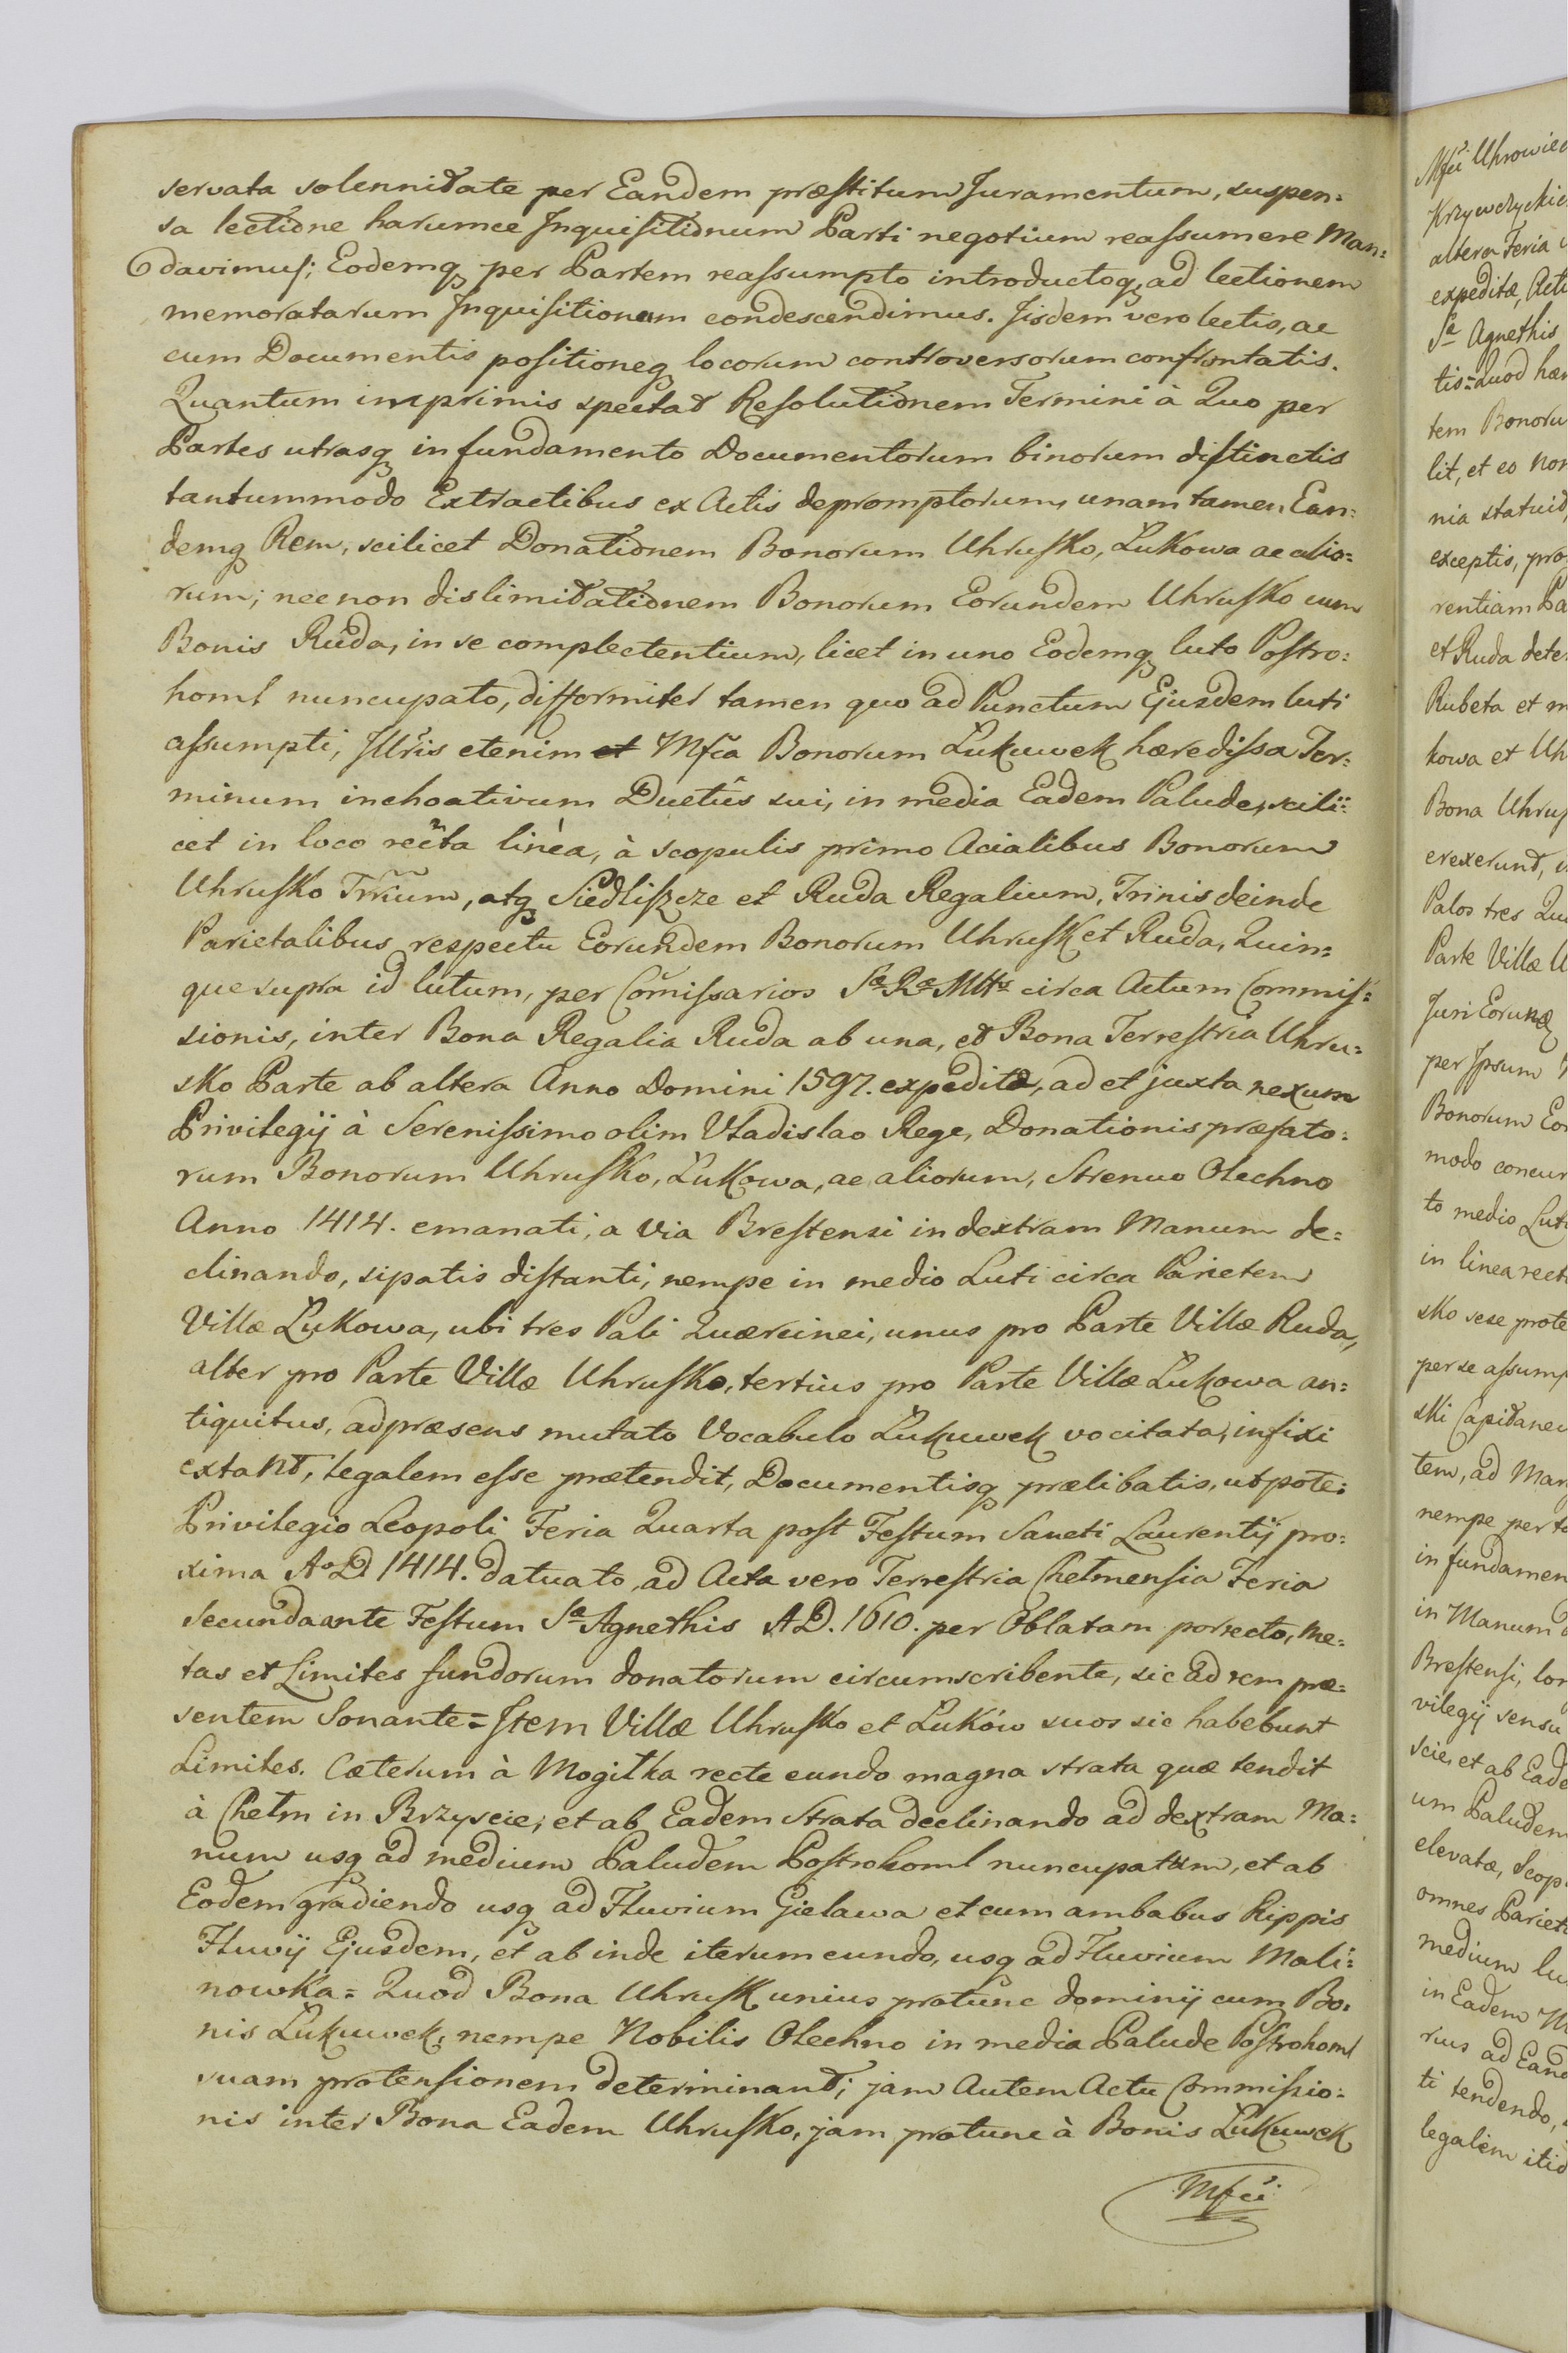 servata solennitate per Eandem præstitum Juramentum, suspen=
sa lectione harumce Inquisitionum Parti negotium reassumere Man=
davimus; Eodemq per Partem reassumpto introductoq, ad lectionem
memoratarum Inquisitionum condescendimus. Iisdem vero lectis, ac
cum Documentis positioneq locorum controversorum confrontatis.
Quantum inprimis spectat Resolutionem Termini à Quo per
Partes utrasq in fundamento Documentorum binorum distinctis
tantummodo Extractibus ex Actis depromptorum, unam tamen Ean=
demq Rem, scilicet Donationem Bonorum Uhrusko, Łukowa ac alio=
rum; necnon dislimitationem Bonorum Eorundem Uhrusko cum
Bonis Ruda, in se complectentium, licet in uno Eodemq luto Postro=
homl nuncupato, difformiter tamen quo ad Punctum Ejusdem luti
assumpti, Illris etenim et Mfca Bonorum Łukuwek hæredissa Ter=
minum inchoativum Ductûs sui, in media Eadem Palude, scili=
cet in loco recta linea, à scopulis primo Acialibus Bonorum
Uhrusko Trrium, atq Siedliszcze et Ruda Regalium, Trinis deinde
Parietalibus respectu Eorundem Bonorum Uhrusk et Ruda, Quin=
que supra id lutum, per Comissarios Sæ Ræ Mttis circa Actum Commis=
sionis, inter Bona Regalia Ruda ab una, et Bona Terrestria Uhru=
sko Parte ab altera Anno Domini 1597. expeditæ, ad et juxta nexum
Privilegij à Serenissimo olim Vladislao Rege, Donationis præfato=
rum Bonorum Uhrusko, Łukowa, ac aliorum, Strenuo Olechno
Anno 1414. emanati, a Via Brestensi in dextram Manum de=
clinando, sipatis distanti, nempe in medio Luti circa Parietem
Villæ Łukowa, ubi tres Pali Quercinei, unus pro Parte Villæ Ruda,
alter pro Parte Villæ Uhrusko, tertius pro Parte Villæ Łukowa an=
tiquitus, ad præsens mutato Vocabulo Łukuwek vocitata, infixi
extant, legalem esse prætendit, Documentisq prælibatis, utpote:
Privilegio Leopoli Feria Quarta post Festum Sancti Laurentij pro=
xima Ao D. 1414. datuato, ad Acta vero Terrestria Chełmensia Feria
Secunda ante Festum Sæ Agnethis A D. 1610. per Oblatam porrecto, Me=
tas et Limites fundorum donatorum circumscribente, sic ad rem præ=
sentem Sonante = Item Villæ Uhrusko et Łuków suos sic habebunt
Limites. Cæterum à Mogiłka recte eundo magna strata quæ tendit
à Chełm in Brzyscie; et ab Eadem Strata declinando ad dextram Ma=
num usq ad medium Paludem Postrohoml nuncupatum, et ab
Eodem gradiendo usq ad Fluvium Gielawa et cum ambabus Rippis
Fluvij Ejusdem, et ab inde iterum eundo, usq ad Fluvium Mali=
nowka = Quod Bona Uhrusk unius protunc dominij cum Bo=
nis Łukuwek, nempe Nobilis Olechno in media Palude Postrohoml
suam protensionem determinant; jam Autem Actu Commissio=
nis inter Bona Eadem Uhrusko, jam protunc à Bonis Łukuwek
Mfci
Mfci Uhrowiec
Krzywczyckie
altera Feria
expeditæ, Act
Sæ Agnethis
tis = Quod
tem Bonoru
lit, et eo
nia statuit
exceptis, pro
rentiam
et Ruda dete
Rubeta et m
kowa et Uh
Bona Uhrus
erexerunt,
Palos tres Qu
Parte Villæ
Juri
per Ipsum
Bonorum
modo concur
to medio Lut
in linea rect
sko sese prote
per se assum
ski Capitaneu
tem, ad Man
nempe per
in fundamen
in Manum
Brestensi, lon
vilegij sensu
scie, et ab Eade
um Paludem
elevatæ, Scop
omnes Pariet
medium lu
in Eadem
rius ad Eand
ti tendendo,
legalem itid